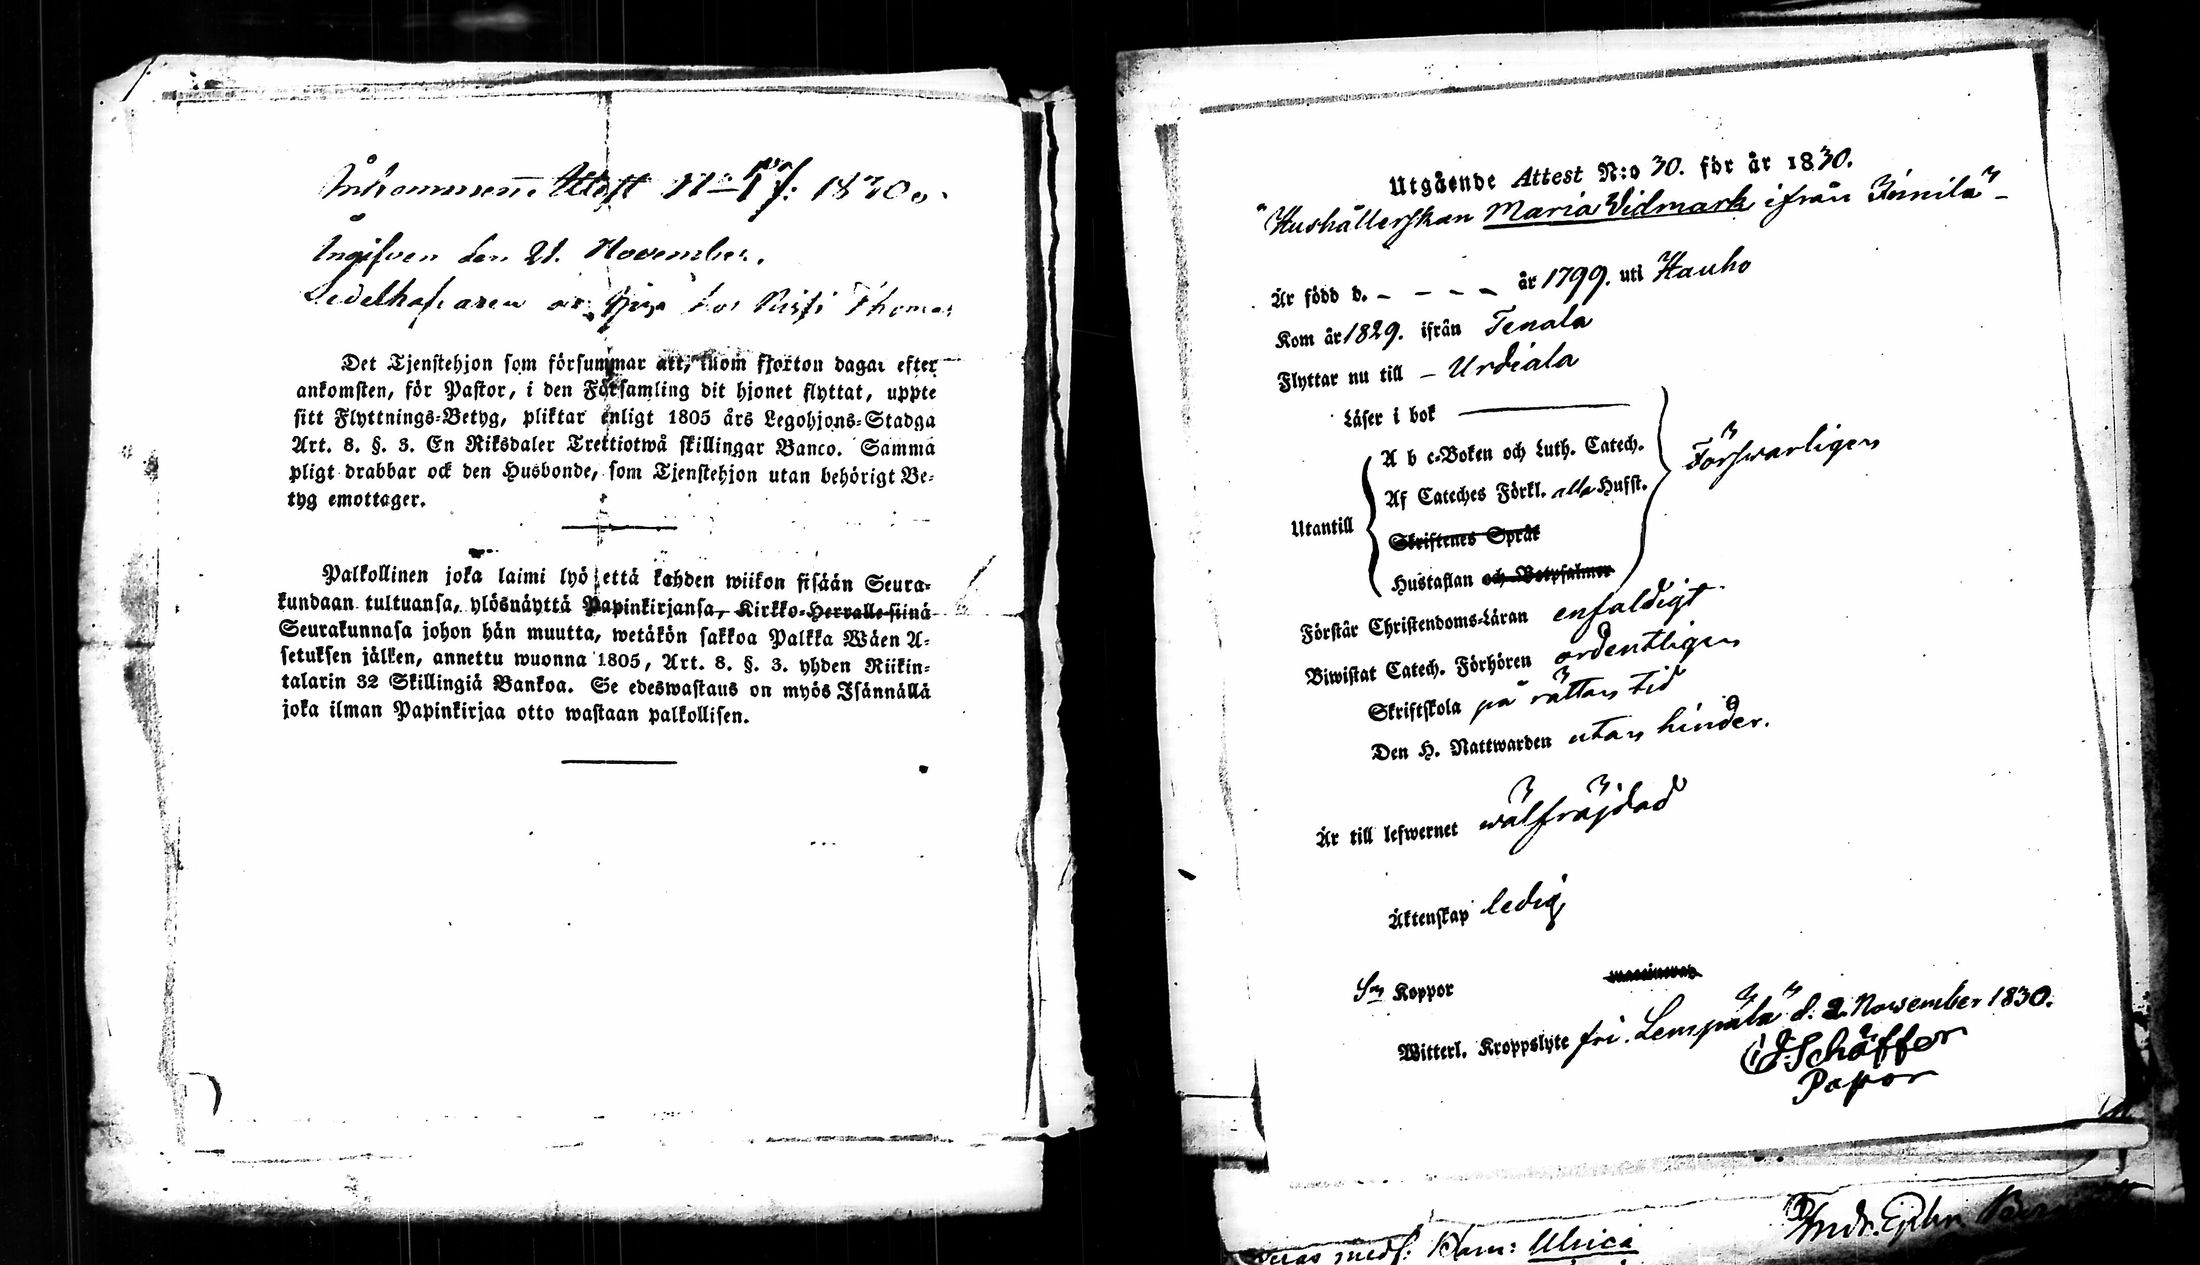 Inkommen Attest N:o 17. 1830.
Ingifven den 21. November.
Sedelhafvaren är hos Risti Thomas
Det Tjenstehjon som försummar att, inom fjorton dagar efter
ankomsten, för Pastor, i den Församling dit hjonet flyttat, uppte
sitt Flyttnings-Betyg, pliktar enligt 1805 års Legohjons-Stadga
Art. 8. §. 3. En Riksdaler Trettiotwå skillingar Banco. Samma
pligt drabbar ock den Husbonde, som Tjenstehjon utan behörigt Be-
tyg emottager.
Palkollinen joka laimi lyö että kahden wiikon sisään Seura-
kundaan tultuansa, ylösnäyttä Papinkirjansa, Kirkko-Herralle siinä
Seurakunnasa johon hän muutta, wetäkön sakkoa Palkka Wäen A-
setuksen jälken, annettu wuonna 1805, Art. 8. §. 3. yhden Riikin-
talarin 32 Skillingiä Bankoa. Se edeswastaus on myös Isännällä
joka ilman Papinkirjaa otto wastaan palkollisen.
Utgående Attest N:o 30. för år 1830.
Hushållerskan Maria Vidmark ifrån
Är född d. - - - - år 1799. uti Hauho
Kom år 1829. ifrån Tenala
Flyttar nu till - Urdiala
Läser i bok
Utantill
A b c-Boken och Luth. Catech.
Af Cateches Förkl. alla Hufst.
Skriftenes Språk
Hustaflan och Botpsalmer
Försvarligen
Förstår Christendoms-Läran enfaldigt
Biwistat Catech. Förhören ordentligen
Skriftskola på rättan tid
Den H. Nattwarden utan hinder.
Är till lefwernet wälfräjdad
Äktenskap ledig
Koppor
Witterl. Kroppslyte fri. Lempälä d. 2. November 1830.
Schäffer
Pastor
medf: Barn: Ulrica